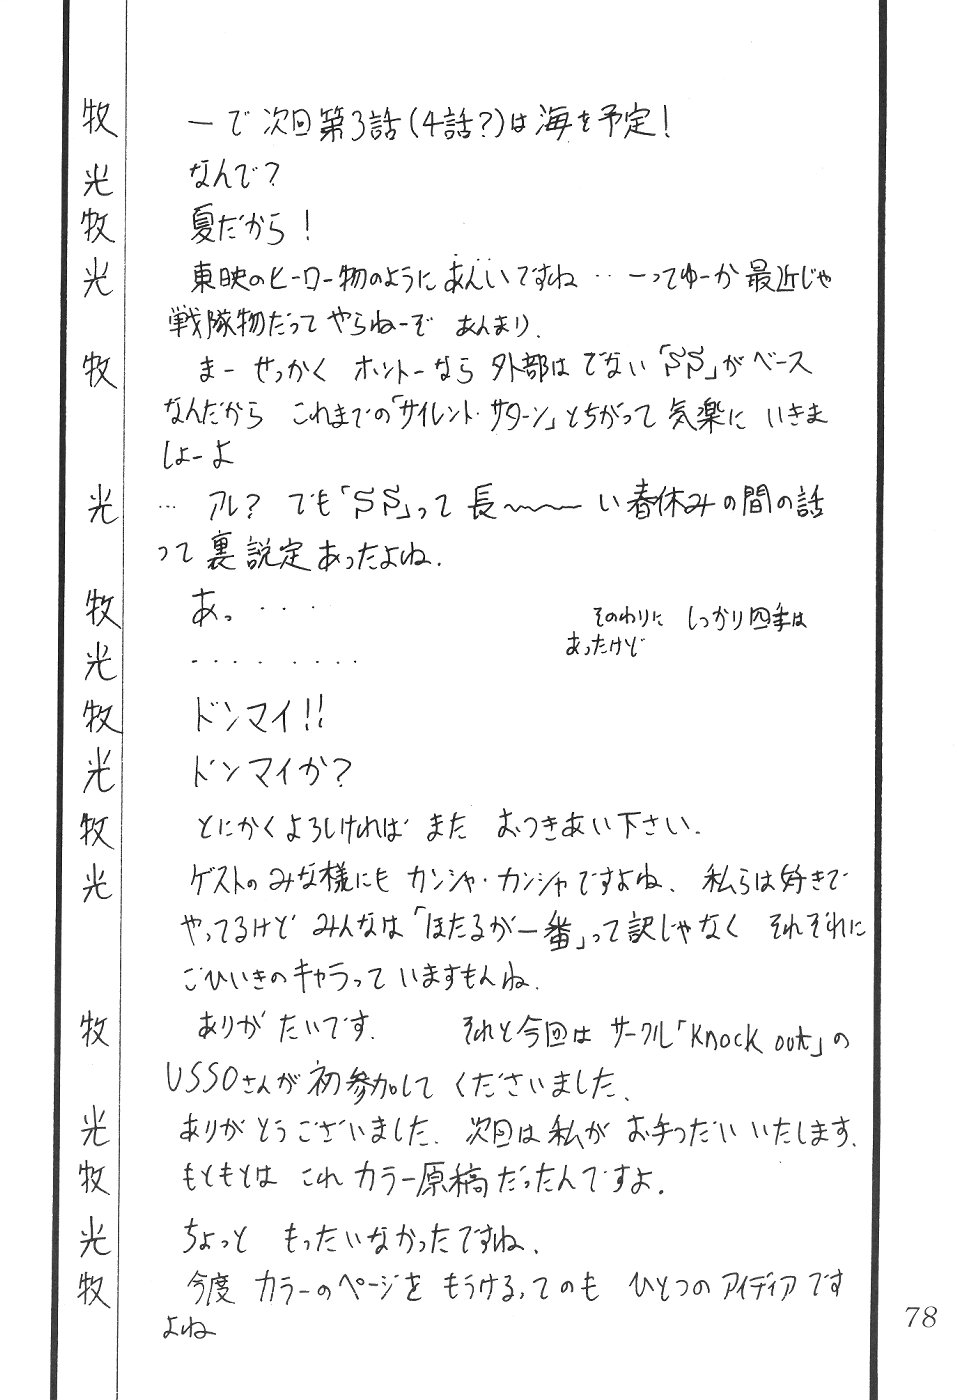 牧 ーで 次回第3話(4話?)は 海を予定!
光 なんで?
牧 夏だから!
光 東映のヒーロー物のように あんいですね … ーってゆーか 最近じゃ
戦隊物だって やらねーぞ あんまり.
牧 まー せっかく ホントーなら 外部は でない「SS」がベース
なんだから これまでの「サイレント・サターン」とちがって 気楽に いきま
しょーよ
光 … アレ? でも「SS」って 長〜〜〜い 春休みの間の話
って 裏設定あったよね.
牧 あっ ・・・・
そのわりに しっかり四季は
あったけど
光 ・・・・ ・・・・
牧 ドンマイ!!
光 ドンマイか?
牧 とにかくよろしければ また おつきあい下さい.
光 ゲストの みな様にも カンシャ・カンシャですよね、 私らは好きで
やってるけど みんなは「ほたるが一番」って訳じゃなく それぞれに
ごひいきのキャラって いますもんね.
牧 ありがたいです. それと今回は サークル「Knock out」の
USSOさんが 初参加して くださいました、
光 ありがとうございました. 次回は私が お手つだい いたします.
牧 もともとは これ カラー原稿だったんですよ.
光 ちょっと もったいなかったですね.
牧 今度 カラーのページを もうけるってのも ひとつのアイディアです
よね
78